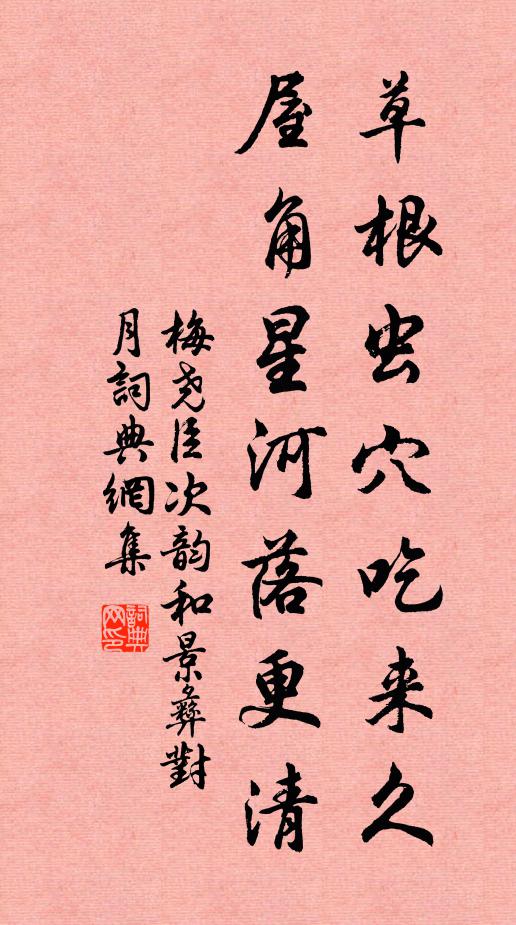 草根虫穴吃来久
屋角星河落更清
梅尧臣次韵和景彝對
月詞典網集
詞典网印